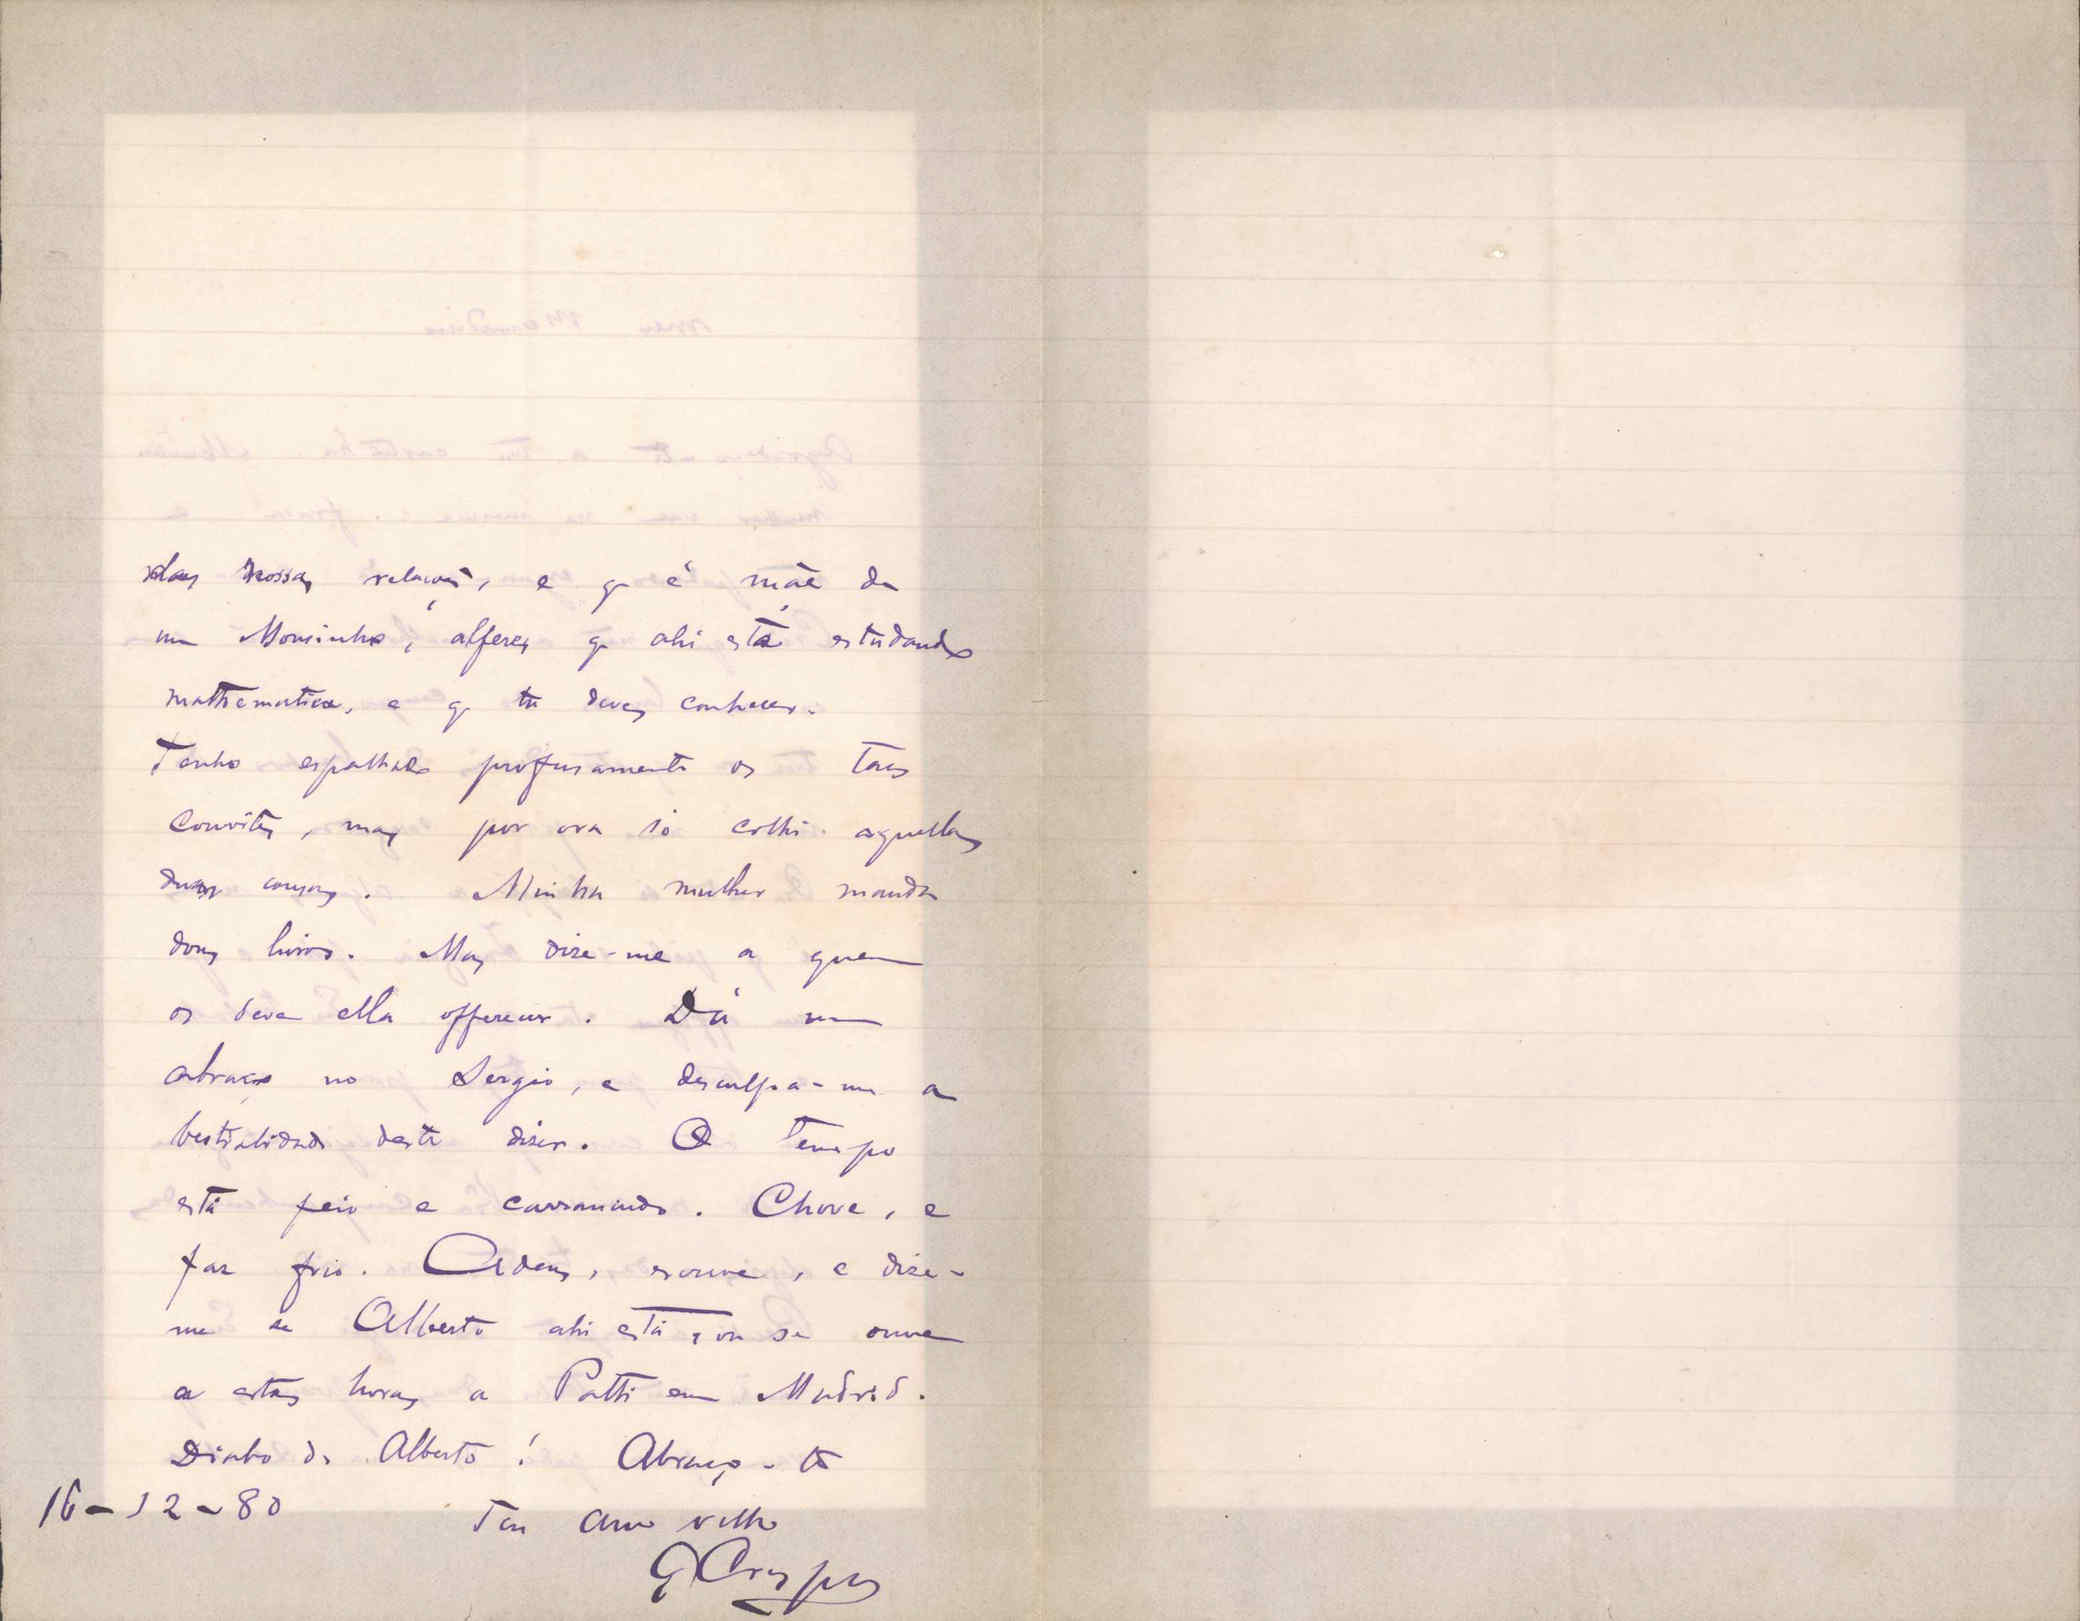 das nossas relações, e q é mãe de
um Mousinho, alferes q ahi está estudando
mathematica, e q tu deves conhecer.
Tenho espalhado profusamente os taes
convites, mas por ora só colhi aquellas
duas cousas. Minha mulher manda
dous livros. Mas dize-me a quem
os deve ella offerecer. Dá um
abraço no Sergio, e desculpa-me a
bestialidade deste dizer. O tempo
está feio e carrancudo. Chove, e
faz frio. Adeus, escreve, e dize-
me se Alberto ahi está, ou se ouve
a estas horas a Patti em Madrid.
Diabo de Alberto! Abraço-te
16-12-80
Teu amo velho
G Crespo